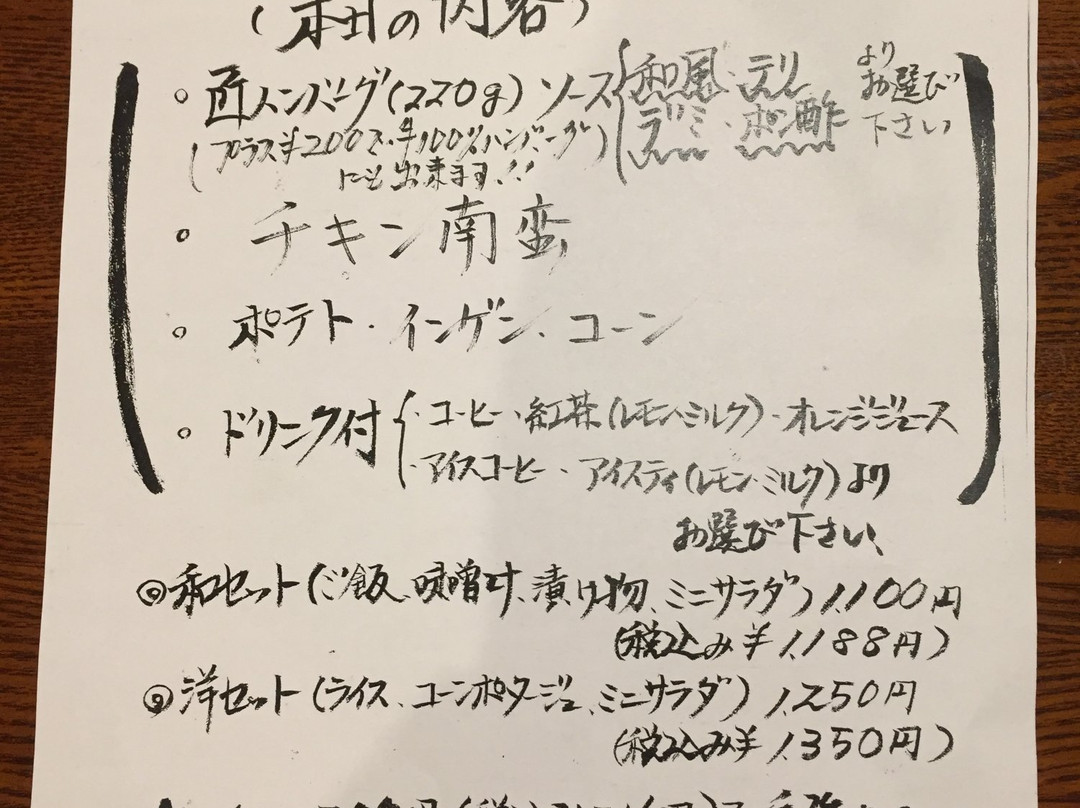 の内容)
○ 匠ハンバーグ(220g) ソース{和風・テリ
デミ・ポン酢
より
お選び
下さい
(プラス¥200で牛100%ハンバーグ)
にも出来ます!!
○ チキン南蛮
○ ポテト・インゲン、コーン
○ ドリンク付{・コーヒー、紅茶(レモン、ミルク)・オレンジジュース
・アイスコーヒー・アイスティ(レモン・ミルク)より
お選び下さい、
◎和セット(ご飯、味噌汁、漬け物、ミニサラダ)1,100円
(税込み¥1,188円)
◎洋セット(ライス、コーンポタージュ、ミニサラダ)1,250円
(税込み¥1,350円)